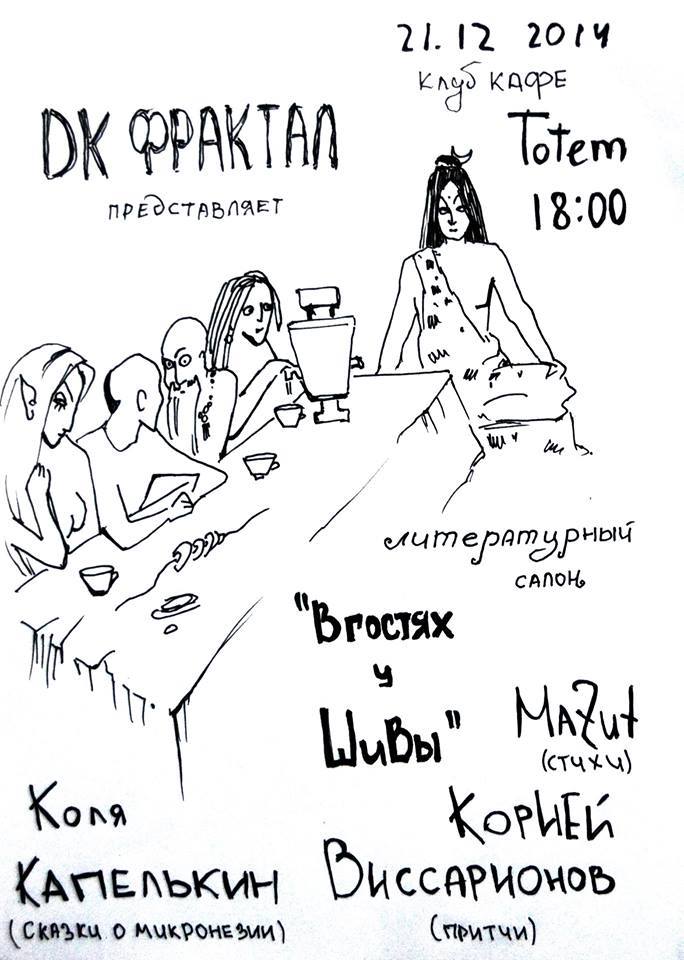 21.12 2014
клуб КАФЕ
Totem
18:00
DK ФРАКТАЛ
ПРЕДСТАВЛЯЕТ
литературный
салон
"В гостях
у
ШиВы"
MaZut
(стихи)
Коля
Капелькин
(сказки о микронезии)
Корней
Виссарионов
(притчи)